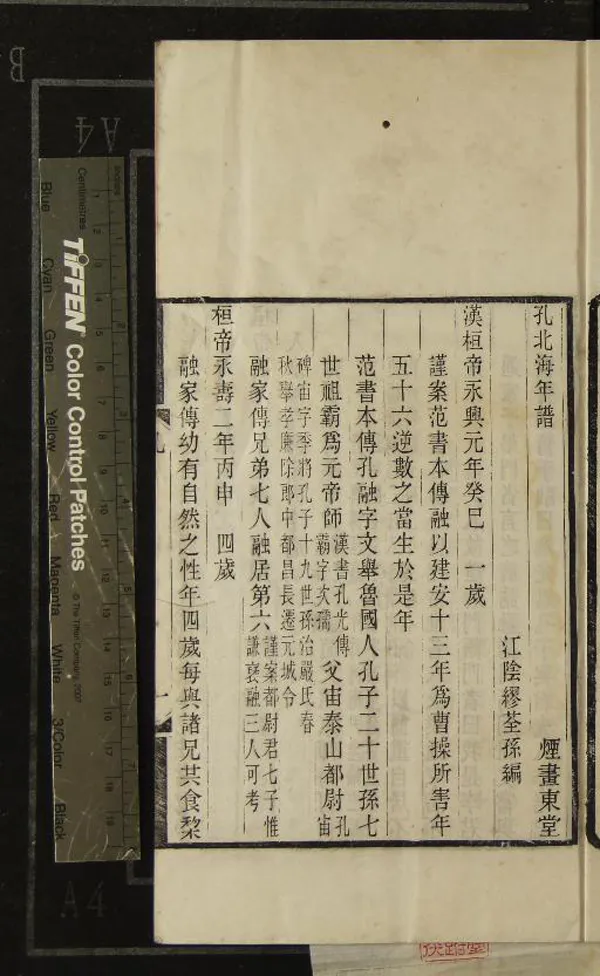 孔北海年譜　煙畫東堂
江陰繆荃孫編
漢桓帝永興元年癸巳　一歲
謹案范書本傳融以建安十三年爲曹操所害年
五十六逆數之當生於是年
范書本傳孔融字文舉魯國人孔子二十世孫七
世祖霸爲元帝師漢書孔光傳霸字次孺父宙泰山都尉孔宙
碑宙字季將孔子十九世孫治嚴氏春
秋舉孝廉除郎中都昌長遷元城令
融家傳兄弟七人融居第六謹案都尉君七子惟謙襃融三人可考
桓帝永壽二年丙申　四歲
融家傳幼有自然之性年四歲每與諸兄共食棃
伏跗室
Inches
Centimetres
TIFFEN Color Control Patches
© The Tiffen Company, 2007
Blue
Cyan
Green
Yellow
Red
Magenta
White
3/Color
Black
A4
A4
B